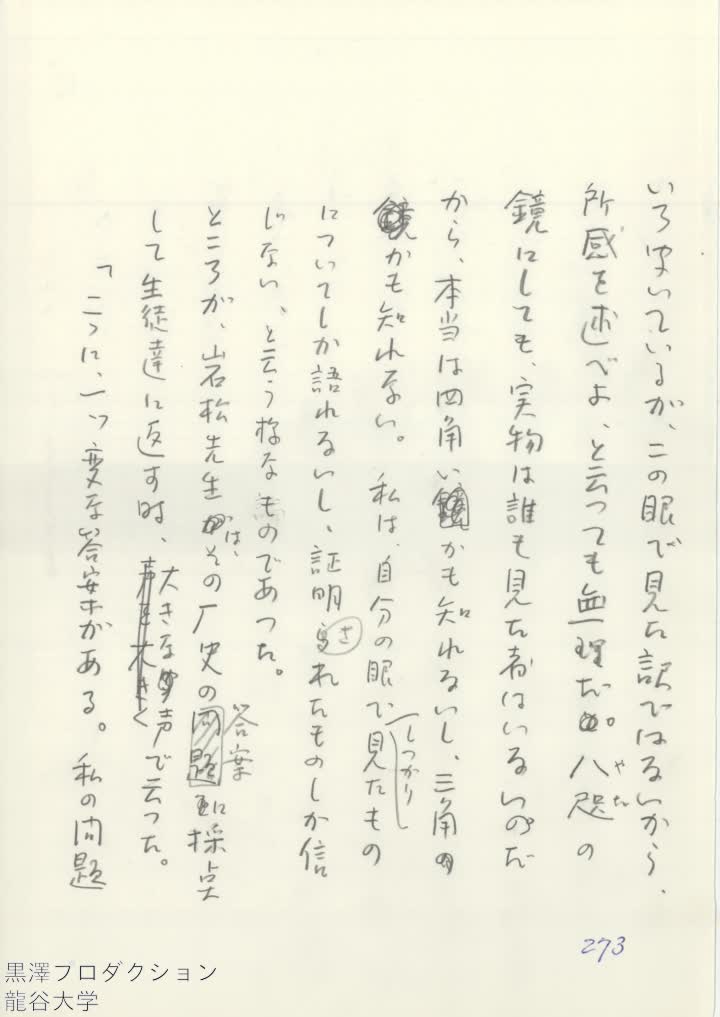 いろ、はいているが、この眼で見た訳ではないから、
所感を述べよ、と云つても無理だ。八咫の
やた
鏡にしても、実物は誰も見た者はいないのだ
から、本当は四角いかも知れないし、三角の
かも知れない。私は、自分の眼で見たもの
しつかり
についてしか語れないし、証明されたものしか信
じない、と云う様なものであつた。
ところが、岩松先生は、その厂史の答案に採点
して生徒達に返す時、大きな声で云つた。
「こゝに、一つ変な答案がある。私の問題
273
黒澤プロダクション
龍谷大学